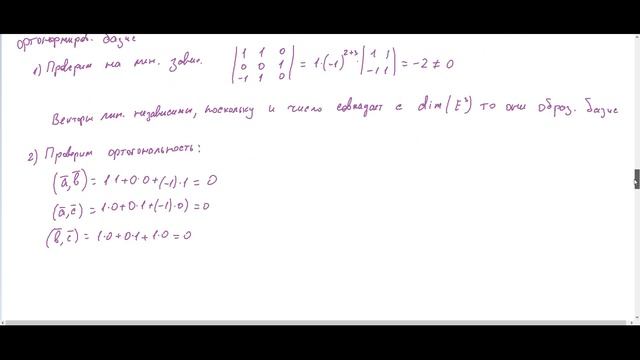 ортонормиров. базис
1) Проверим на лин. завис. | 1 1 0 | = 1·(-1)²⁺³ · | 1 1 | = -2 ≠ 0
| 0 0 1 | | -1 1 |
| -1 1 0 |
Векторы лин. независимы, поскольку и число совпадает с dim(E³) то они образ. базис
2) Проверим ортогональность:
(a̅,b̅) = 1·1+0·0+(-1)·1 = 0
(a̅,c̅) = 1·0+0·1+(-1)·0 = 0
(b̅,c̅) = 1·0+0·1+1·0 = 0